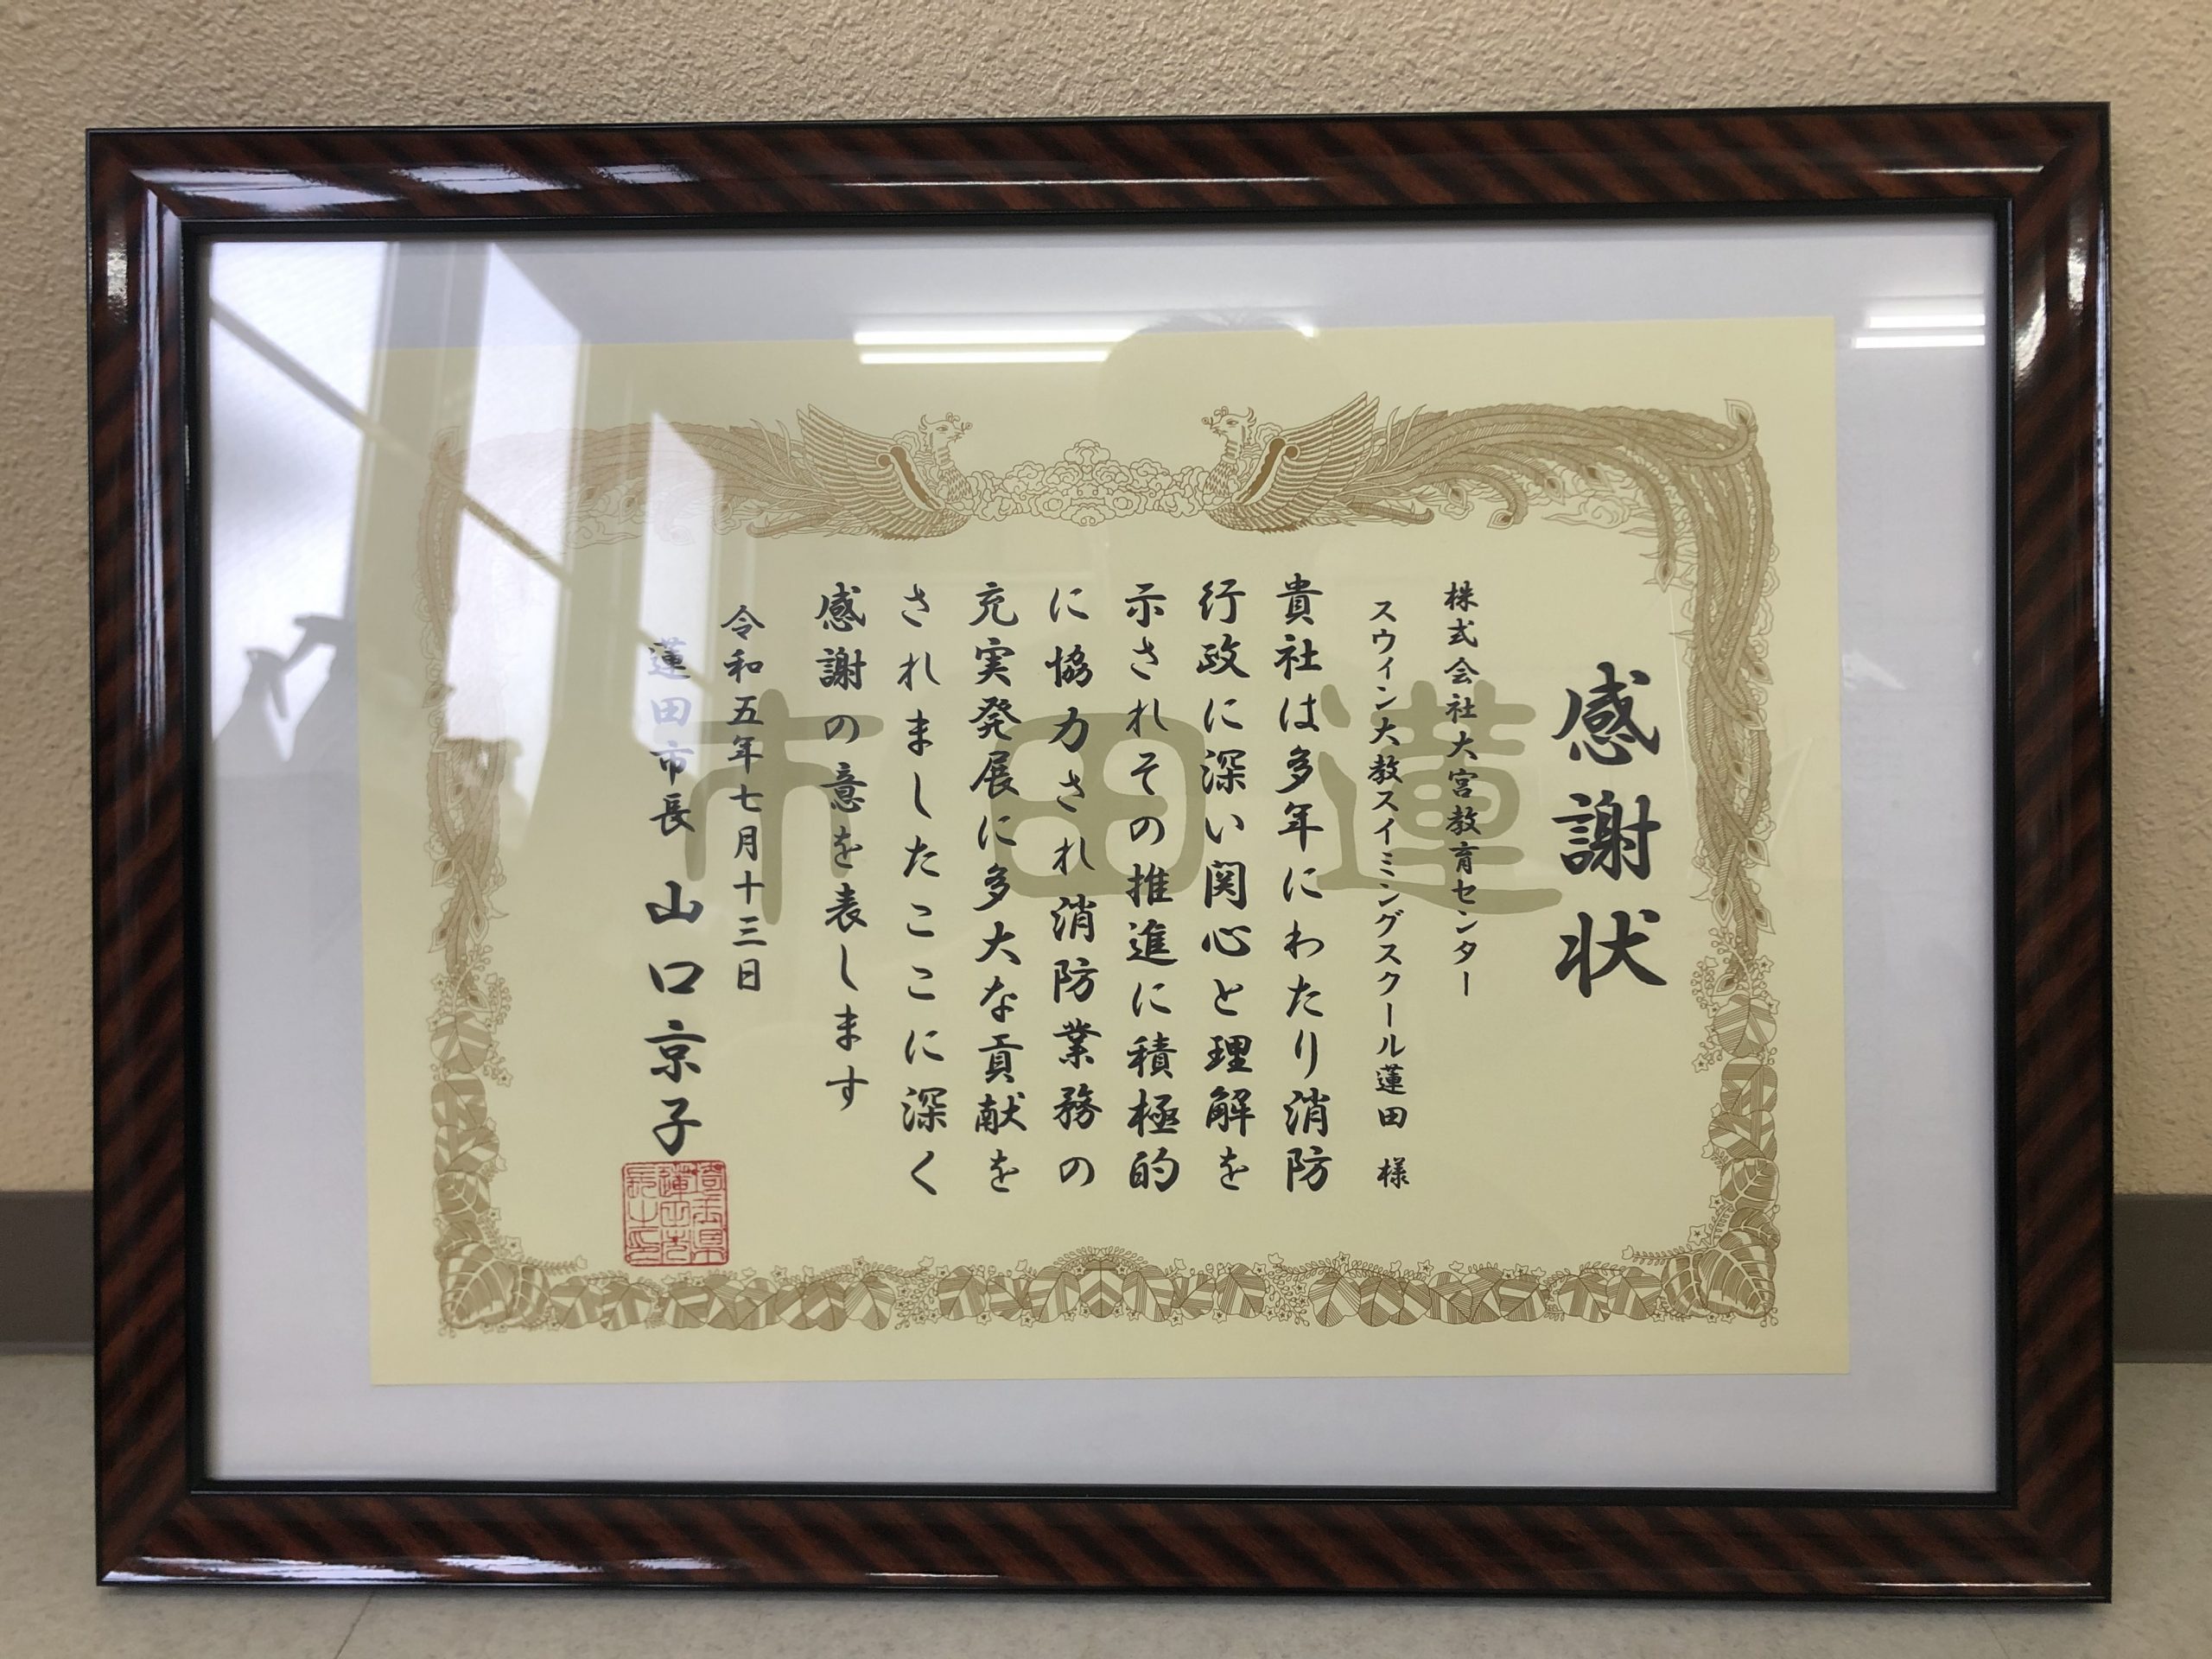 感謝状
株式会社大宮教育センター
スウィン大教スイミングスクール蓮田 様
貴社は多年にわたり消防
行政に深い関心と理解を
示されその推進に積極的
に協力され消防業務の
充実発展に多大な貢献を
されましたここに深く
感謝の意を表します
令和五年七月十三日
蓮田市長 山口京子
蓮田市